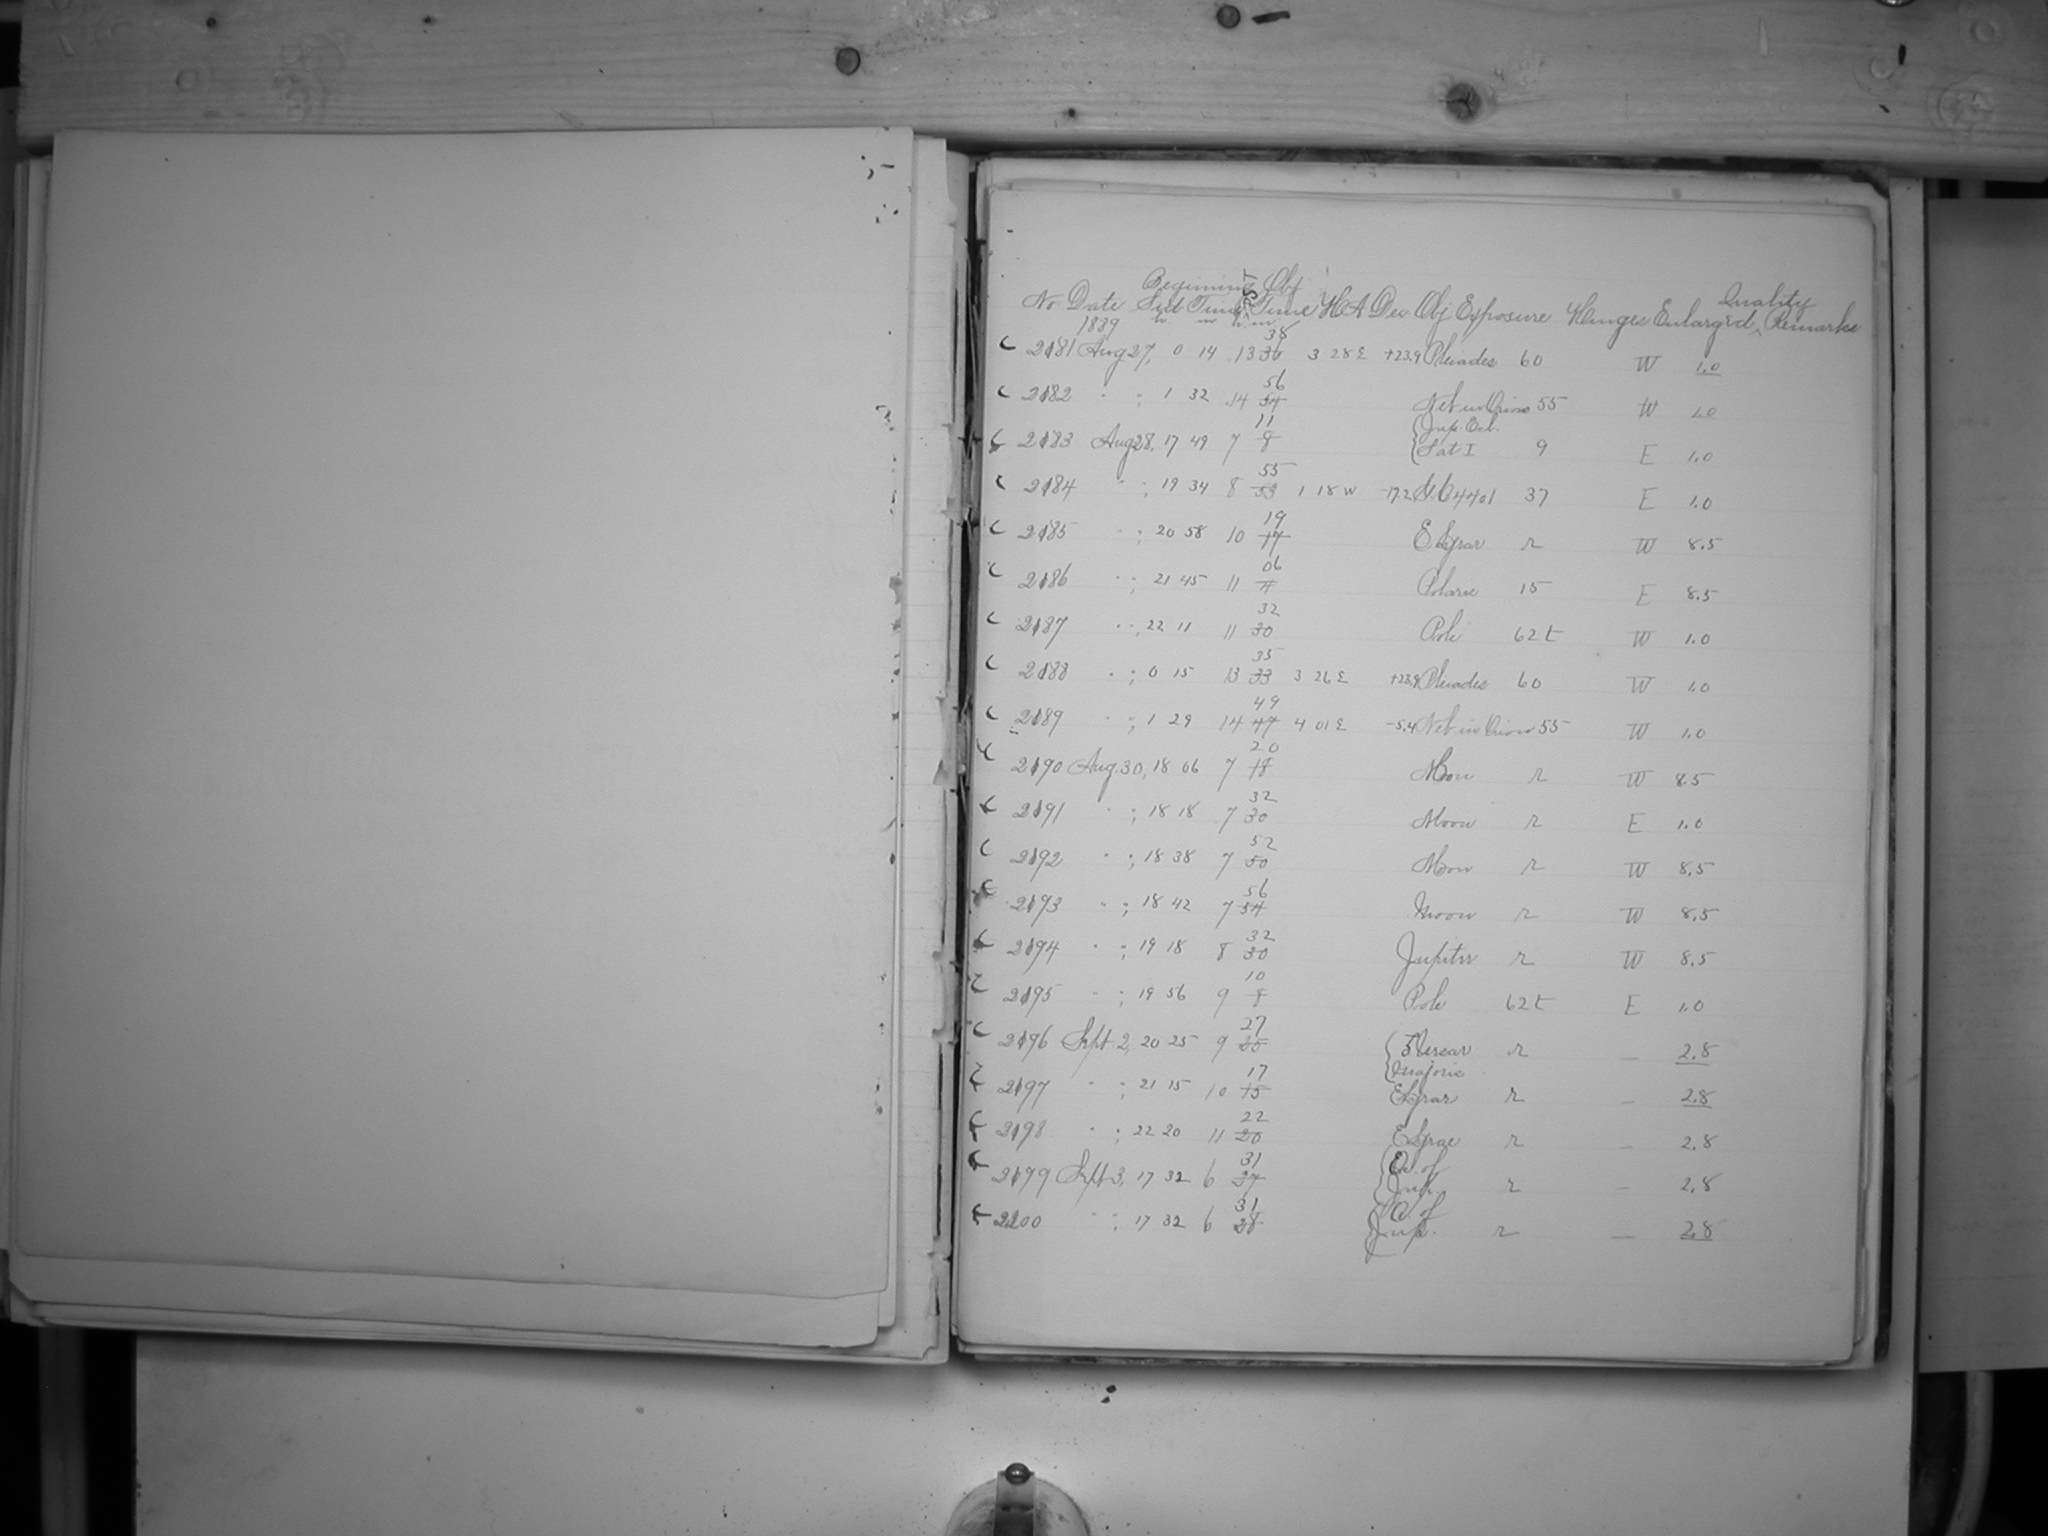 Beginning Obj
Quality
No. Date Sid Time PST Time H A Dec. Obj Exposure Hinges Enlarged, Remarks
1889 h m h m
38
2181 Aug 27, 0 14 13 36 3 28 E +23.9 Pleiades 60 W 1.0
56
2182 " "; 1 32 14 54 Neb in Orion 55 W 1.0
11
2183 Aug 28, 17 49 7 8 { Jup. Ecl. Sat I 9 E 1.0
55
2184 " ; 19 34 8 53 1 18 W -17.2 G.C. 4401 37 E 1.0
19
2185 " ; 20 58 10 17 E Lyrae r W 8.5
06
2186 " ; 21 45 11 4 Polaris 15 E 8.5
32
2187 " ; 22 11 11 30 Pole 62 t W 1.0
35
2188 " ; 0 15 13 33 3 26 E +23.9 Pleiades 60 W 1.0
49
2189 " ; 1 29 14 47 4 01 E -5.4 Neb in Orion 55 W 1.0
20
2190 Aug. 30, 18 06 7 18 Moon r W 8.5
32
2191 " ; 18 18 7 30 Moon r E 1.0
52
2192 " ; 18 38 7 50 Moon r W 8.5
56
2193 " ; 18 42 7 54 Moon r W 8.5
32
2194 " ; 19 18 8 30 Jupiter r W 8.5
10
2195 " ; 19 56 9 8 Pole 62 t E 1.0
27
2196 Sept 2, 20 25 9 25 { Ursae Majoris r — 2.8
17
2197 " ; 21 15 10 15 E Lyrae r — 2.8
22
2198 " ; 22 20 11 20 E Lyrae r — 2.8
31
2199 Sept 3, 17 32 6 27 { Oc. of Jup. r — 2.8
31
2200 " ; 17 32 6 28 { Oc. of Jup. r — 2.8